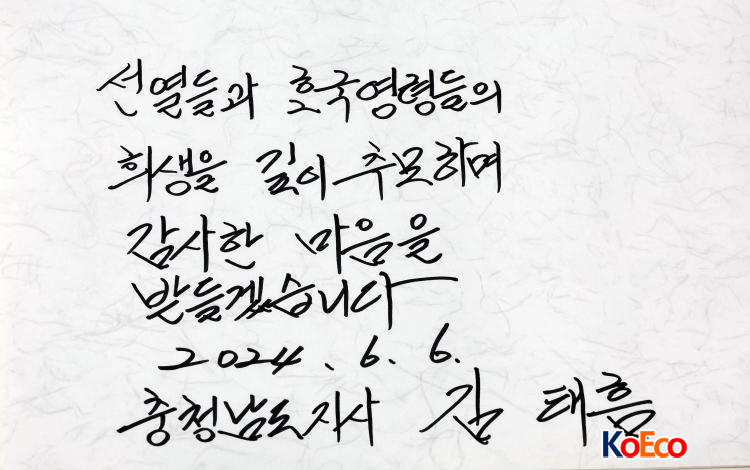 선열들과 호국영령들의
희생을 깊이 추모하며
감사한 마음을
받들겠습니다
2024. 6. 6.
충청남도지사 김 태흠
KoEco